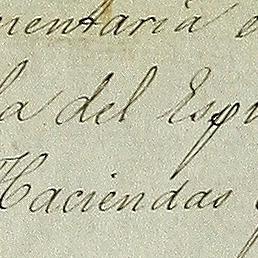 mentaria e
la del Esp
Haciendas